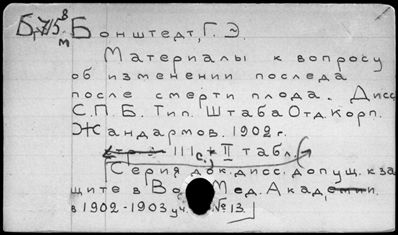 Б,715 в м
Бонштедт, Г. Э.
Материалы к вопросу
об изменении последа
после смерти плода. Дисс.
С.П.Б. Тип. Штаба Отд. Корп.
Жандармов. 1902 г.
111 с. + II табл.
[Серия док. дисс. допущ. к за-
щите в Во Мед. Академии.
в 1902-1903 уч. № 13.]